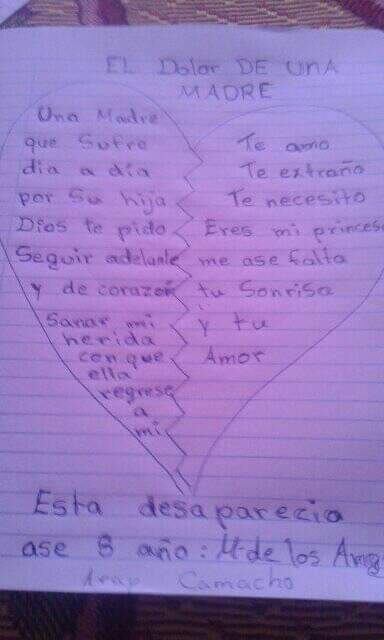 EL Dolor DE UNA
MADRE
Una Madre
que Sufre
dia a día
por Su hija
Dios te pido
Seguir adelante
y de corazon
Sanar mi
herida
con que
ella
regrese
a
mi
Te amo
Te extraño
Te necesito
Eres mi princesa
me ase falta
tu Sonrisa
y tu
Amor
Esta desaparecia
ase 8 año: M de los Ang
Arap Camacho